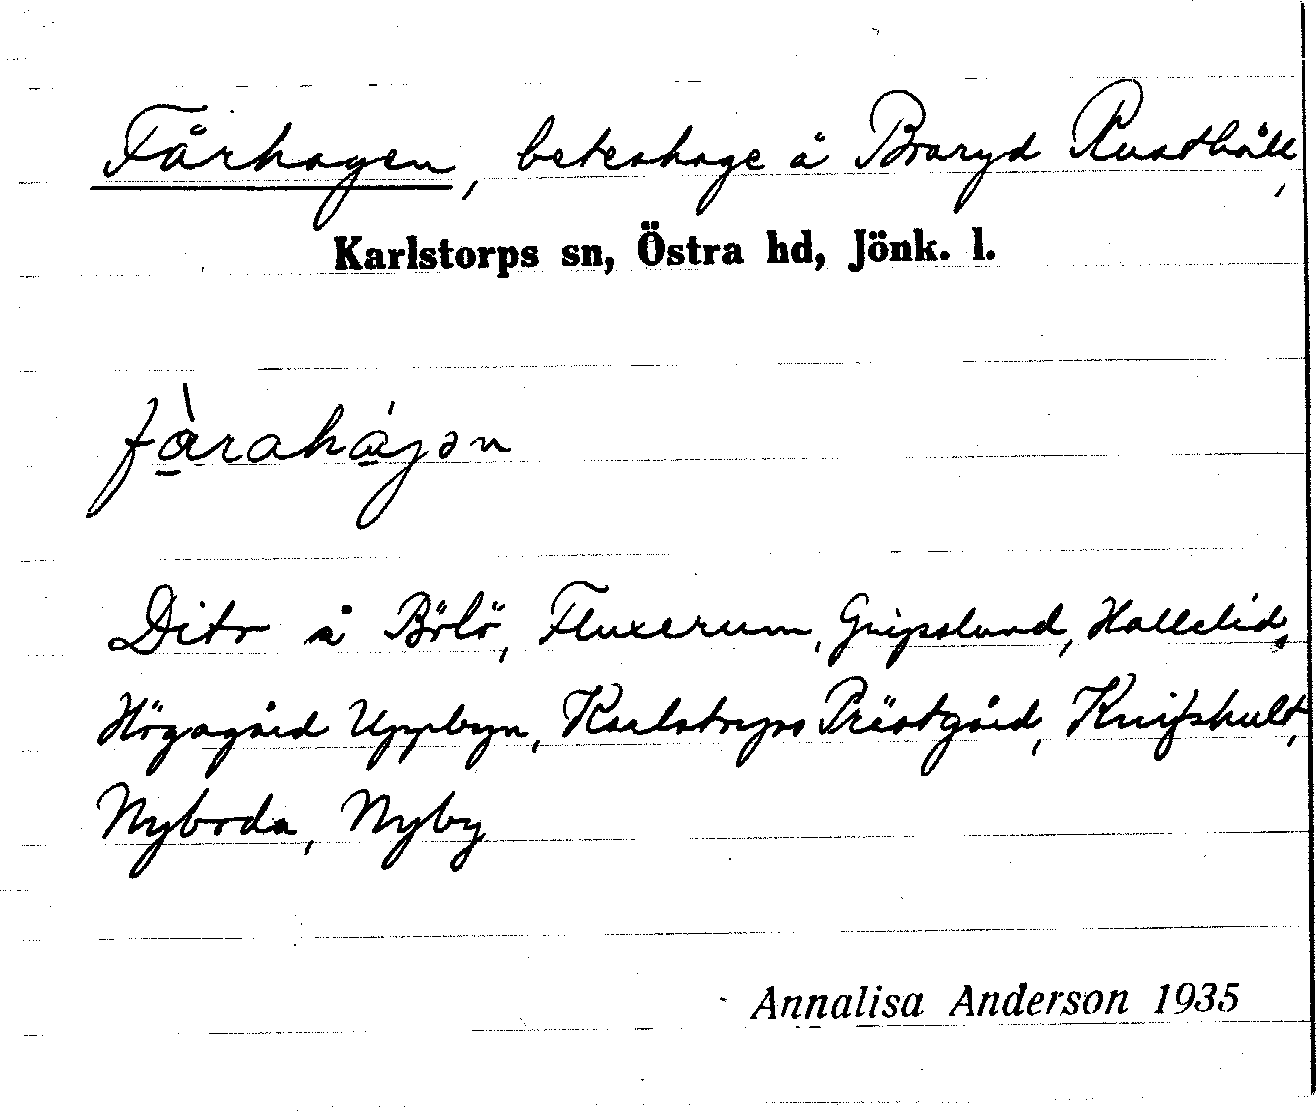 Fårhagen, beteshage å Braryd Rusthåll,
Karlstorps sn, Östra hd, Jönk. l.
fàrahájən
Dito å Bölö, Fluxerum, Gripslund, Hallelid,
Högagärd Uppbyn, Karlstorps Prästgård, Knifshult,
Nyboda, Nyby
Annalisa Anderson 1935